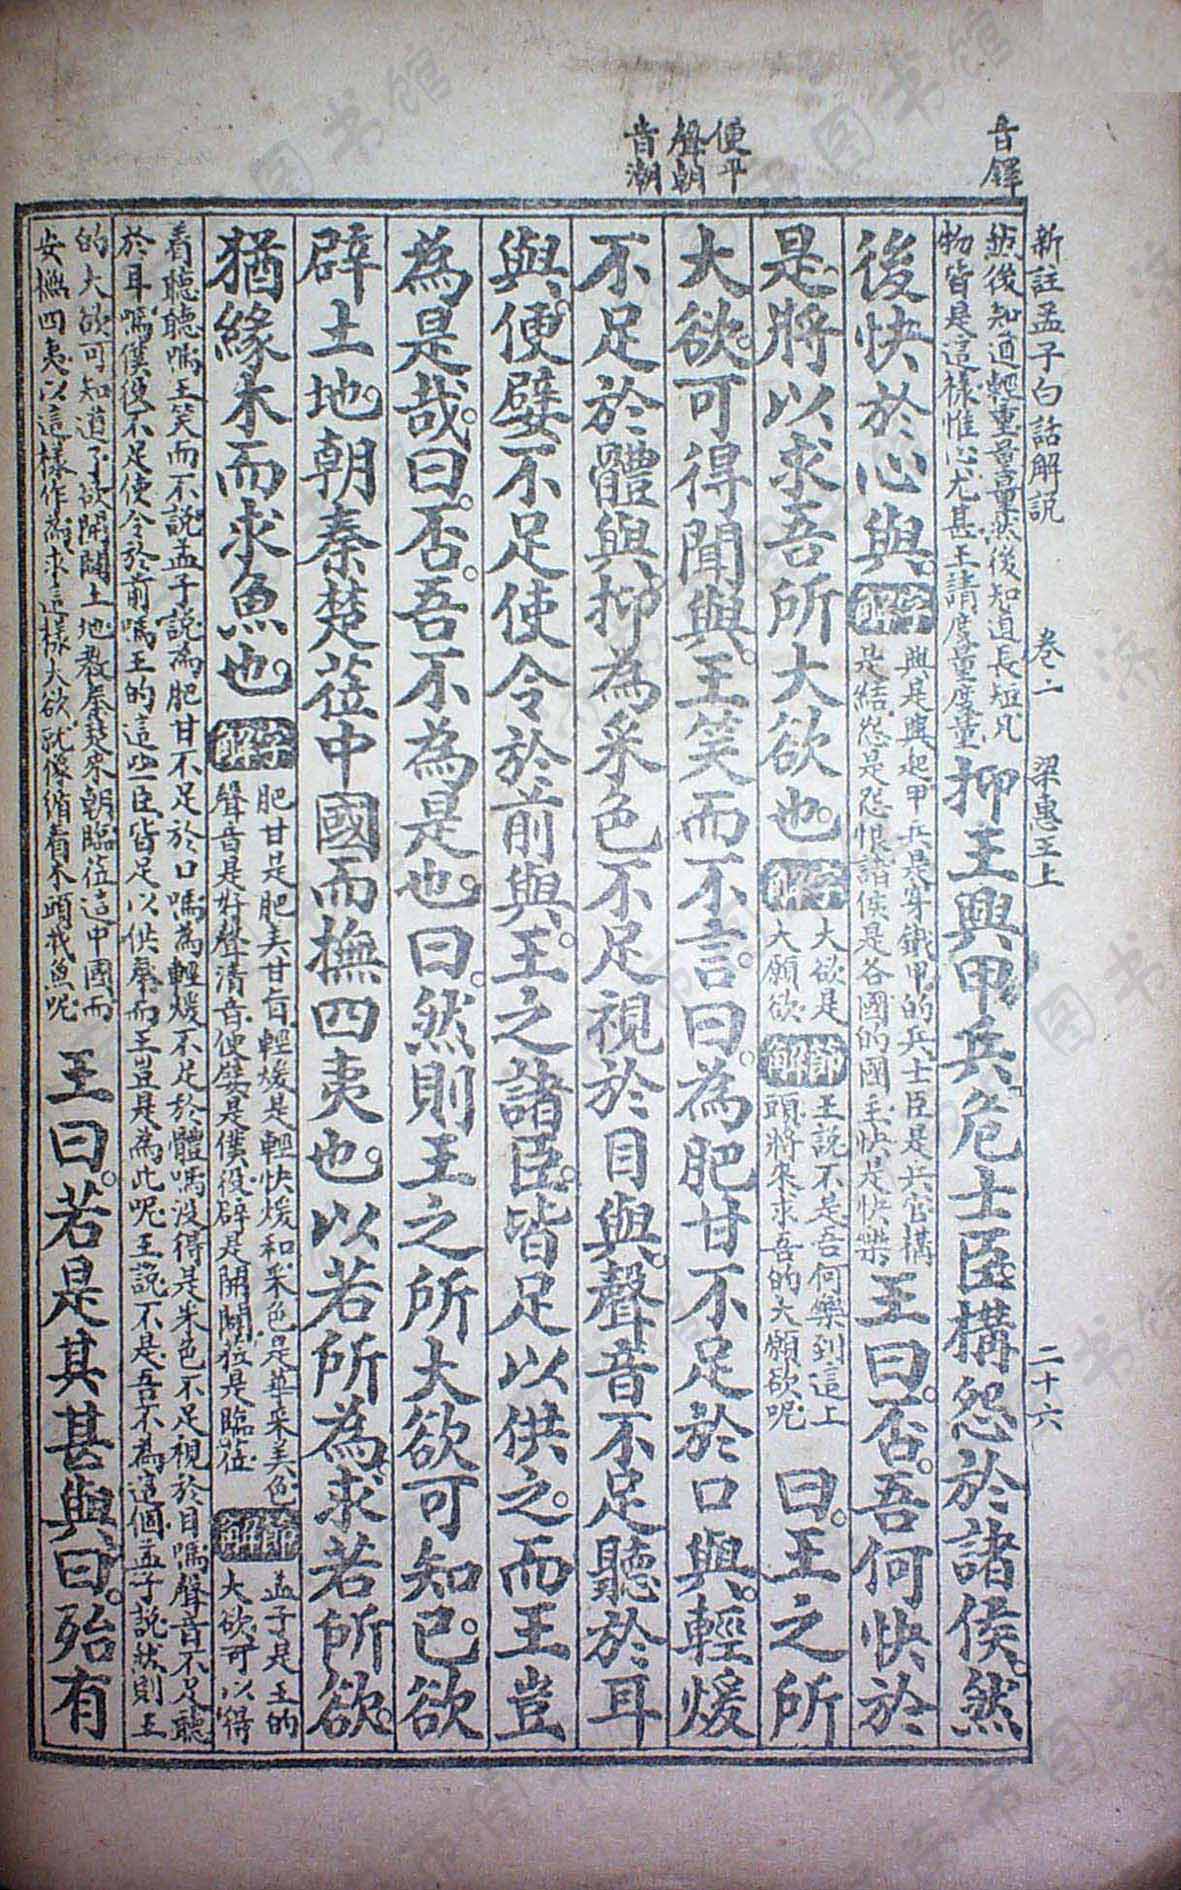 新註孟子白話解說　卷一　梁惠王上　二十六
音鐸
便平
聲朝
音潮
然後知道輕重量量然後知道長短凡
物皆是這樣惟心尤甚王請度量度量
抑王興甲兵危士臣構怨於諸侯然
後快於心與
字解
興是興起甲兵是穿鐵甲的兵士臣是兵官構
是結怨是怨恨諸侯是各國的國主快是快樂
王曰否吾何快於
是將以求吾所大欲也
字解
大欲是
大願欲
節解
王說不是吾何樂到這上
頭將來求吾的大願欲呢
曰王之所
大欲可得聞與王笑而不言曰為肥甘不足於口與輕煖
不足於體與抑為采色不足視於目與聲音不足聽於耳
與便嬖不足使令於前與王之諸臣皆足以供之而王豈
為是哉曰否吾不為是也曰然則王之所大欲可知已欲
辟土地朝秦楚莅中國而撫四夷也以若所為求若所欲
猶緣木而求魚也
字解
肥甘是肥美甘旨輕煖是輕快煖和采色是華采美色
聲音是好聲清音便嬖是僕役辟是開闢莅是臨莅
節解
孟子是王的
大欲可以得
着聽聽嗎王笑而不說孟子說為肥甘不足於口嗎為輕煖不足於體嗎沒得是采色不足視於目嗎聲音不足聽
於耳嗎僕役不足使令於前嗎王的這些臣皆足以供奉而王豈是為此呢王說不是吾不為這個孟子說然則王
的大欲可知道了欲開闢土地教秦楚來朝臨莅這中國而
安撫四夷以這樣作為求這樣大欲就像循着木頭找魚呢
王曰若是其甚與曰殆有